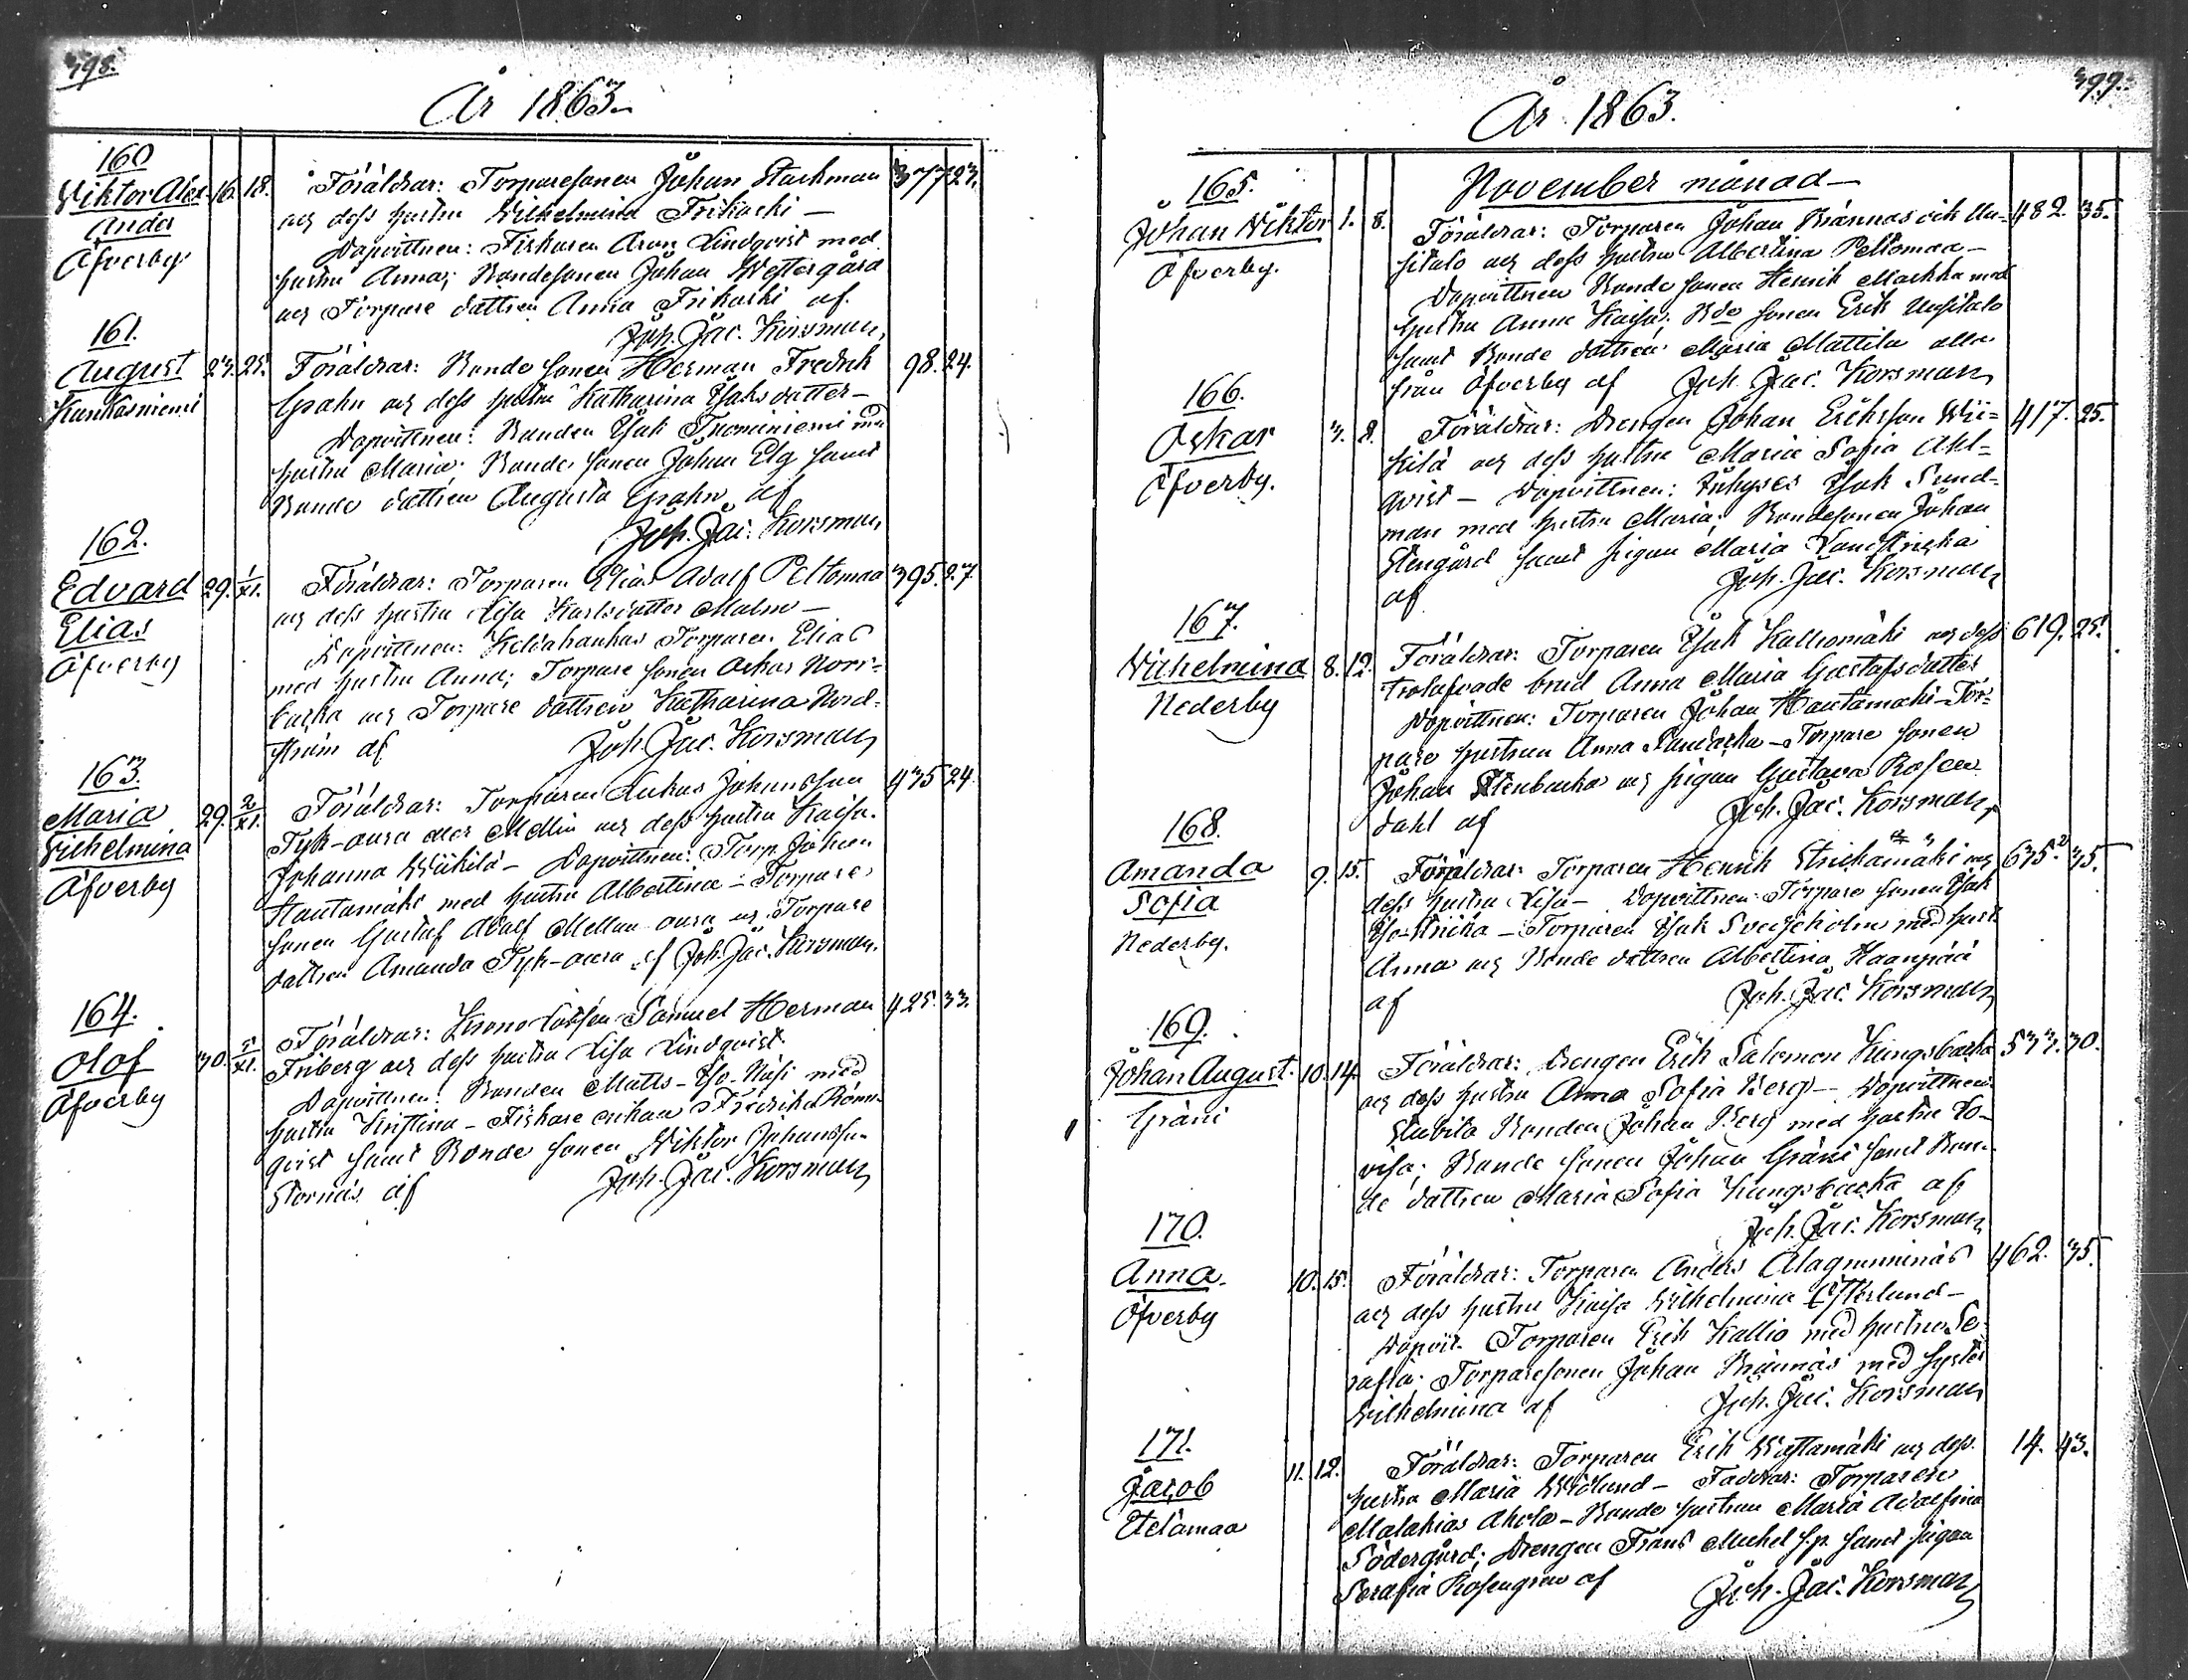 398.
År 1863.
160
Wiktor Alex-
ander
Öfverby
16. 18.
Föräldrar: Torparesonen Johan Starkman 377 23.
och dess hustru Wilhelmina Frikaski —
Dopvittnen: Fiskaren Aron Lindqvist med
hustru Anna; Bondesonen Johan Westergård
och Torpare dottren Anna Frikaski af
Joh. Jac. Korsman,
161.
August
Kankasniemi
23. 25.
Föräldrar: Bonde sonen Herman Fredrik 98. 24.
och dess hustru Katharina Isaks dotter —
Dopvittnen: Bonden Isak Tuominiemi med
hustru Maria; Bonde sonen Johan Elg samt
Bonde dottren Augusta af
Joh. Jac. Korsman,
162.
Edvard
Elias
Öfverby
29. 1/XI.
Föräldrar: Torparen Elias Adolf Peltomaa 395. 27
och dess hustru Lisa Karlsdotter Malm —
Dopvittnen: Torparen Elias
med hustru Anna; Torpare sonen Oskar Norr-
backa och Torpare dottren Katharina Nord-
ström af Joh. Jac. Korsman,
163.
Maria
Wilhelmina
Öfverby
29. 2/XI.
Föräldrar: Torparen Lukas Johansson 435 24.
Tyk-aura eller Mellin och dess hustru Kaisa
Johanna Wiikilä — Dopvittnen: Torp. Johan
Hautamäki med hustru Albertina — Torpare
sonen Gustaf Adolf Mellan aura och Torpare
dottren Amanda Tyk-aura af Joh. Jac. Korsman.
164.
Olof
Öfverby
30. 5/XI.
Föräldrar: Krono Samuel Herman 425. 33.
Friberg och dess hustru Lisa Lindqvist.
Dopvittnen: Bonden Matts Iso-Näsi med
hustru Kristina — Fiskare enkan Fredrika Rönn-
qvist samt Bonde sonen Wiktor Johansson
Stornäs af Joh. Jac. Korsman,
399.
År 1863.
November månad —
165.
Johan Wiktor
Öfverby.
1. 8.
Föräldrar: Torparen Johan Brännas och Uu- 482. 35.
sitalo och dess hustru Albertina Peltomaa —
Dopvittnen Bonde sonen Henrik Markka med
hustru Anna Kaisa; Bde sonen Erik Uusitalo
samt Bonde dottren Maria Mattila alla
från Öfverby af Joh. Jac. Korsman,
166.
Oskar
Öfverby.
3. 8.
Föräldrar: Drengen Johan Eriksson Wii- 417. 25.
kilä och dess hustru Maria Sofia Ahl-
qvist — Dopvittnen: Inhyses Isak Sund-
man med hustru Maria; Bondesonen Johan
Stengård samt pigan Maria
af Joh. Jac. Korsman,
167.
Wilhelmina
Nederby
8. 12.
Föräldrar: Torparen Isak Kalliomäki och dess 619. 25.
trolofvade brud Anna Maria Gustafsdotter
Dopvittnen: Torparen Johan Hautamäki — Tor-
pare hustrun Anna Sandbacka — Torpare sonen
Johan Stenbacka och pigan Gustava Rosen
dahl af Joh. Jac. Korsman,
168.
Amanda
Sofia
Nederby.
9. 15.
Föräldrar: Torparen Henrik Striekamäki och 635. 35.
dess hustru Lisa — Dopvittnen: Torpare sonen Isak
Iso-Striika — Torparen Isak Svedjeholm med hust.
Anna och Bonde dottren Albertina Haanpää
af Joh. Jac. Korsman,
169.
Johan August.
Gräni
10. 14.
Föräldrar: Drengen Erik Salomon Kungsbacka 533. 30.
och dess hustru Anna Sofia Berg — Dopvittnen
Stubila Bonden Johan Berg med hustru Lo-
visa; Bonde sonen Johan Gräni samt Bon-
de dottren Maria Sofia Kungsbacka af
Joh. Jac. Korsman,
170.
Anna.
Öfverby
10. 15.
Föräldrar: Torparen Anders 462. 35.
och dess hustru Kaisa Wilhelmina Österlund —
Dopvit. Torparen Erik Kallio med hustru Se-
rafia; Torparesonen Johan Brännäs med syster
Wilhelmina af Joh. Jac. Korsman,
171.
Jacob
Ytelämaa
11. 12.
Föräldrar: Torparen Erik Wastamäki och dess 14. 43.
hustru Maria Widlund — Faddrar: Torparen
Malakias Ahola — Bonde hustrun Maria Adolfina
Södergård; Drengen Frans Mickel s.p. samt pigan
Serafia Rosengren af Joh. Jac. Korsman,